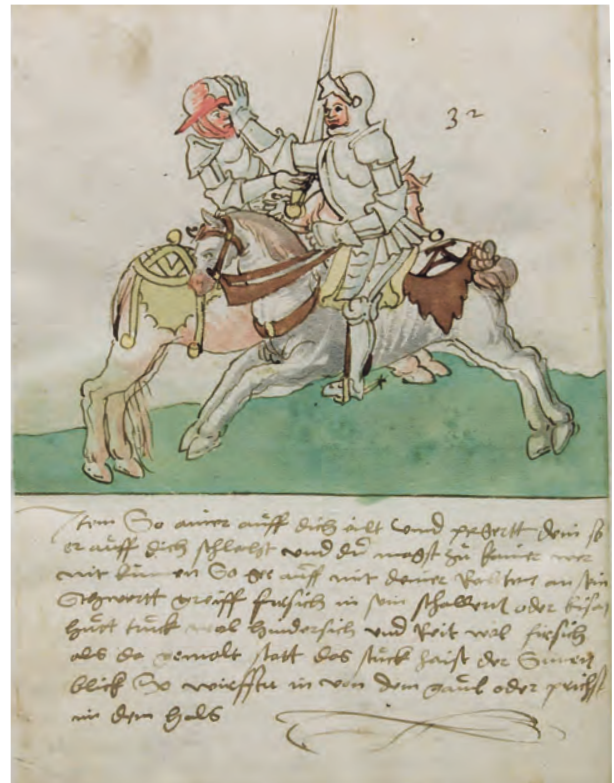 32
Item So ainer auff dich eilt vnnd pegertt dein so
er auff dich schlecht vnnd du magst zu kainer wer
nit kumen So ger auff mit deiner an sein
Schwertt greiff fursich in sein schallern oder
huet truck wol hindersich vnd Reit wol fursich
als da gemolt statt das stuck haist der
blick So wirffstu in von dem gaul oder prichst
im den hals